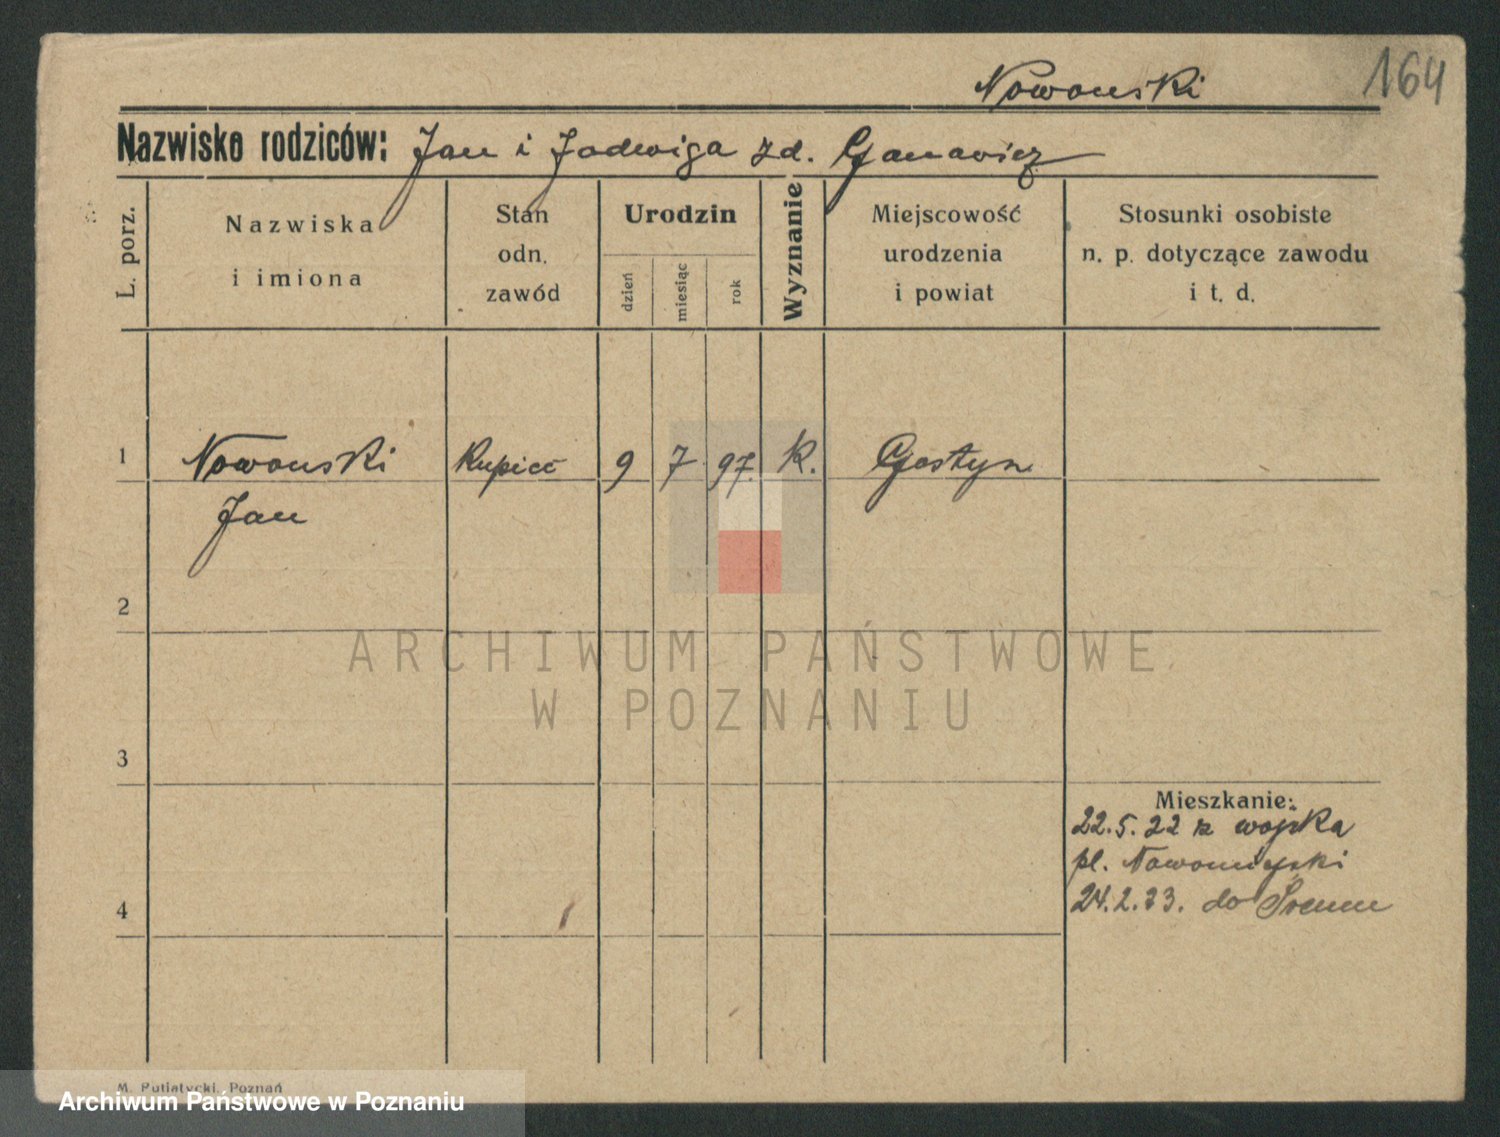 164
Nowonski
Nazwisko rodziców: Jan i Jadwiga zd. Ganawicz
L. porz.
Nazwiska
i imiona
Stan
odn.
zawód
Urodzin
dzień
miesiąc
rok
Wyznanie
Miejscowość
urodzenia
i powiat
Stosunki osobiste
n. p. dotyczące zawodu
i t. d.
1 Nowonski Kupiec 9 7 97. K. Gostyn
Jan
2
ARCHIWUM PAŃSTWOWE
W POZNANIU
3
Mieszkanie:
22.5.22 z wojska
pl. Nowomiejski
24.2.23. do Śremu
4
M. Putiatycki, Poznań
Archiwum Państwowe w Poznaniu